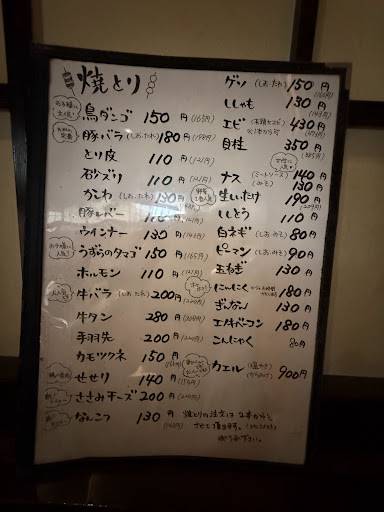 焼とり
鳥ダンゴ 150円 (165円)
豚バラ (しお.たれ) 180円 (198円)
とり皮 110円 (121円)
砂ズリ 110円 (121円)
かしわ (しお.たれ) 130円 (143円)
豚レバー 110円 (121円)
ウインナー 130円 (143円)
うずらのタマゴ 150円 (165円)
ホルモン 110円 (121円)
牛バラ (しお.たれ) 200円 (220円)
牛タン 280円
手羽先 200円 (220円)
カモツクネ 150円
せせり 140円 (154円)
ささみチーズ 200円 (220円)
なんこつ 130円 (143円)
ゲソ (しお.たれ) 150円 (165円)
ししゃも 130円 (143円)
エビ 430円 (473円)
貝柱 350円 (385円)
ナス (ミートソース) 140円
(みそ) 130円
生しいたけ 190円 (209円)
ししとう 110円
白ネギ (しお.みそ) 80円
ピーマン (しお.みそ) 90円
玉ねぎ 130円
にんにく 180円
ぎんなん 130円
エノキベーコン 180円
こんにゃく 80円
カエル 900円
焼とりの注文は2本から
させて頂きます。